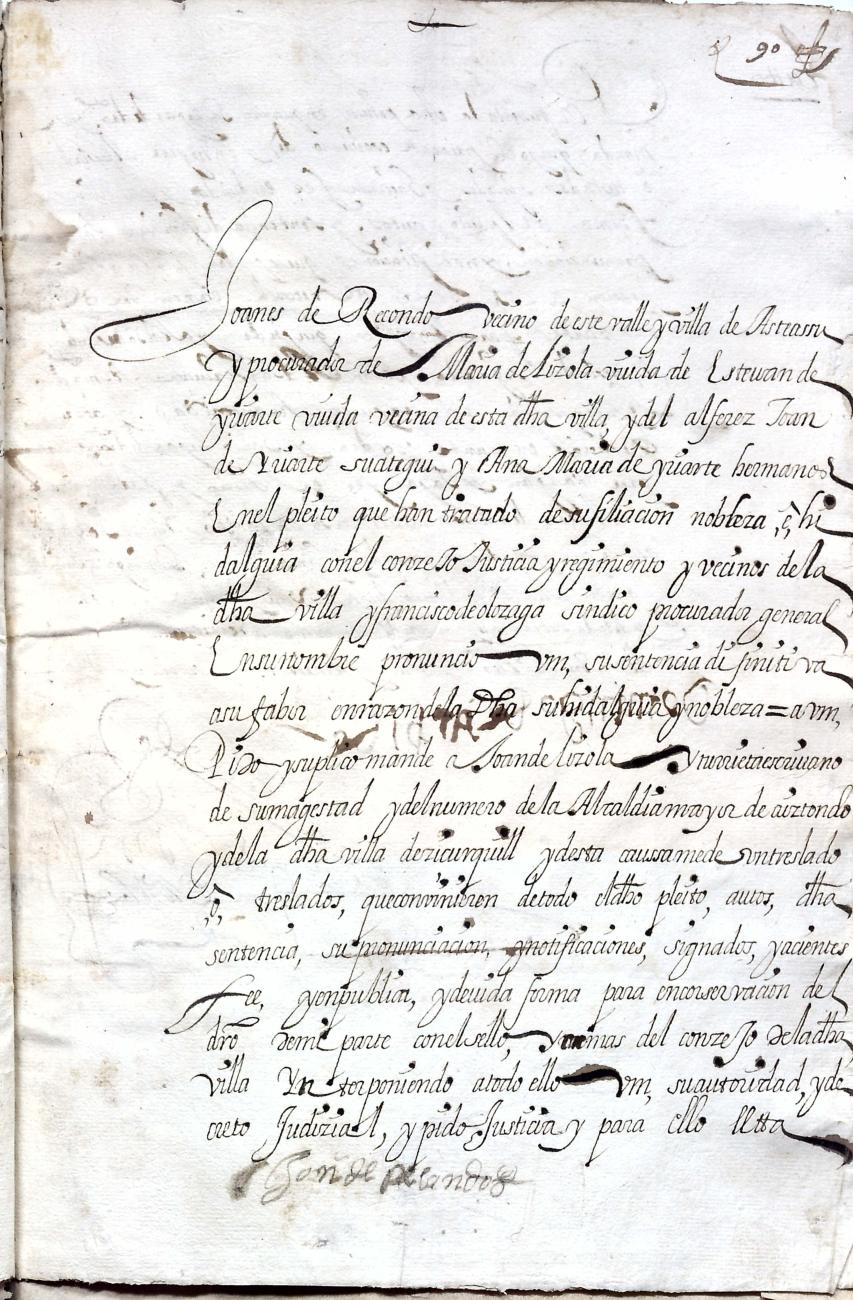 90
Joanes de Recondo vecino de este valle y villa de Asteassu
y procurador de Maria de lizola viuda de Esteuan de
yriarte viuda vecina de esta dha villa, y del alferez Joan
de Yriarte suategui y Ana Maria de yriarte hermanos
Enel pleito que han tratado de su filiacion nobleza, è, hi
dalguia con el conzeJo Justicia y regimiento y vecinos de la
dha villa y francisco de olozaga sindico procurador general
En su nombre pronuncio vm, su sentencia difinitiva
a su fabor en razon de la Dha su hidalguia y nobleza = a vm,
Pido y suplico mande a Joan de lizola yturrieta escriuano
de su magestad y del numero de la Alcaldia mayor de aiztondo
y de la dha villa de zicurquill y desta caussa me de vn treslado
ò, treslados, que convinieren de todo el dho pleito, autos, dha
sentencia, su pronunciacion, y notificaciones, signados, y acientes
Fee, y en publica, y deuida forma para en conservacion del
dro de mi parte con el sello, y armas del conzeJo de la dha
villa Yn torponiendo a todo ello vm, su autoridad, y de
creto Judizial, y pido Justicia y para ello ettta
Joan de Recondo